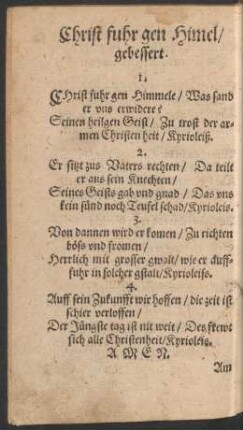 Christ fuhr gen Himel/
gebessert.
1.
CHrist fuhr gen Himmele / Was sand
er vns erwidere?
Seinen heilgen Geist / Zu trost der ar-
men Christenheit / Kyrioleiß.
2.
Er sitzt zus Vaters rechten / Da teilt
er aus sein Knechten /
Seines Geists gab vnd gnad / Das vns
kein sünd noch Teufel schad / Kyrioleis.
3.
Von dannen wird er komen / Zu richten
böß vnd fromen /
Herrlich mit grosser gwalt / wie er auff-
fuhr in solcher gstalt / Kyrioleiß.
4.
Auff sein Zukunfft wir hoffen / die zeit ist
schier verloffen /
Der Jüngste tag ist nit weit / Des frewt
sich alle Christenheit / Kyrioleis.
A M E N.
Am